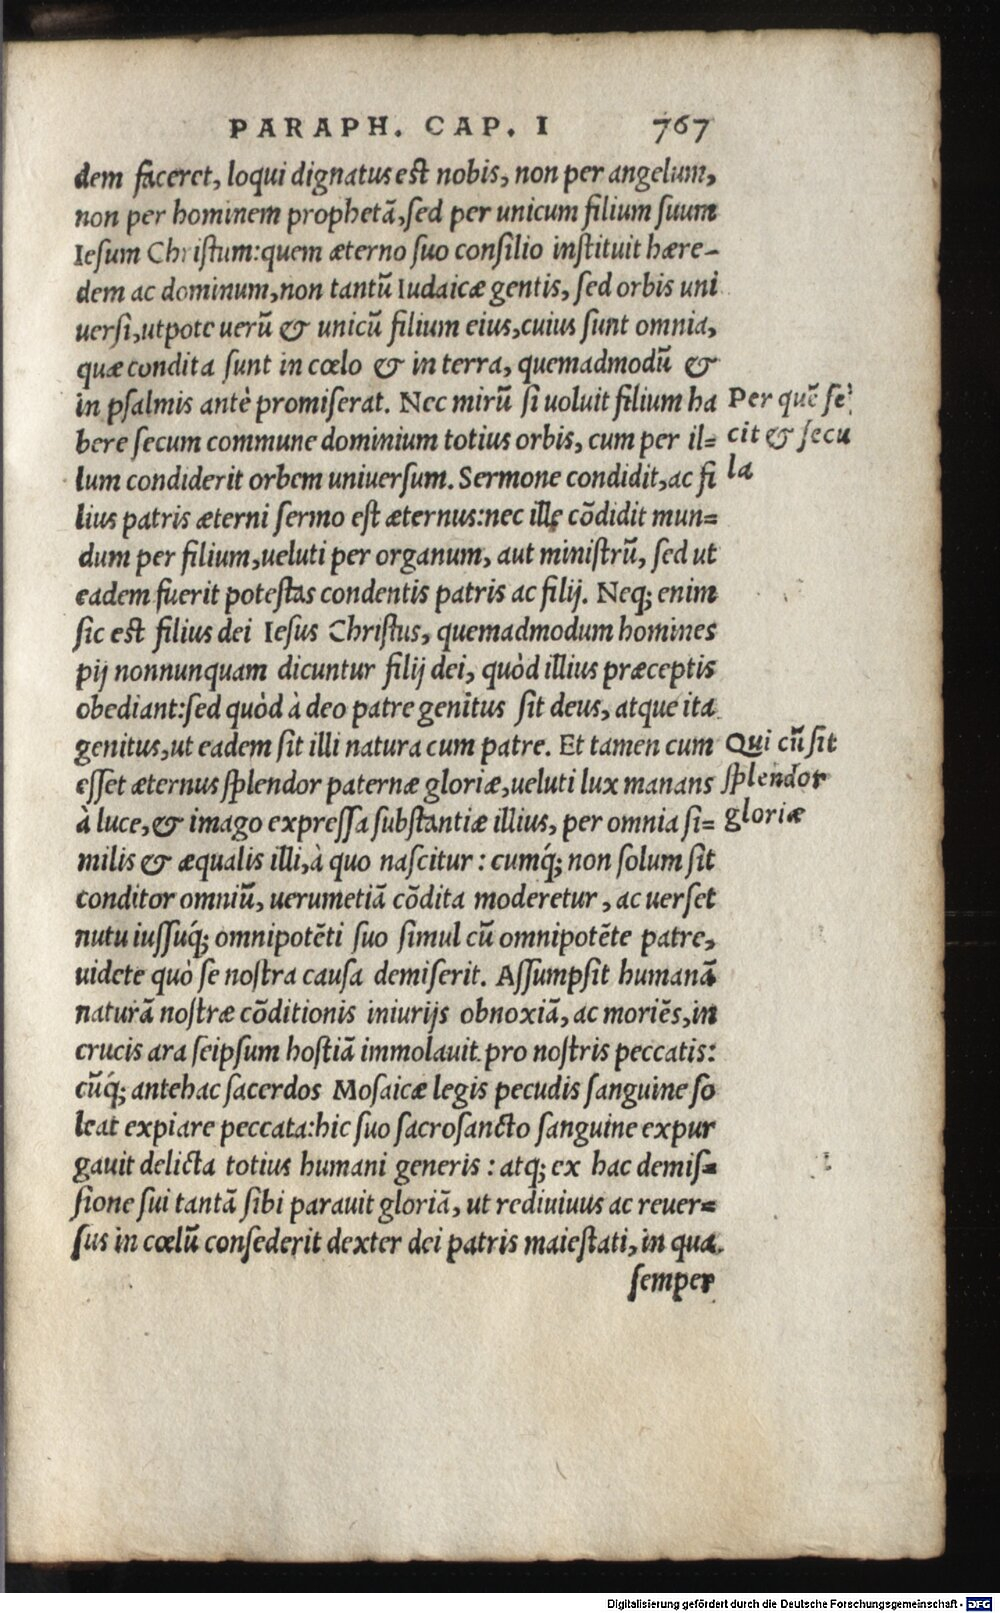 PARAPH. CAP. I 767
dem faceret, loqui dignatus est nobis, non per angelum,
non per hominem prophetā, sed per unicum filium suum
Iesum Christum: quem æterno suo consilio instituit hære-
dem ac dominum, non tantū Iudaicæ gentis, sed orbis uni
uersi, utpote uerū & unicū filium eius, cuius sunt omnia,
quæ condita sunt in cœlo & in terra, quemadmodū &
in psalmis antè promiserat. Nec mirū si uoluit filium ha
Per quē fe
bere secum commune dominium totius orbis, cum per il=
cit & secu
lum condiderit orbem uniuersum. Sermone condidit, ac fi
la
lius patris æterni sermo est æternus: nec ille cōdidit mun=
dum per filium, ueluti per organum, aut ministrū, sed ut
eadem fuerit potestas condentis patris ac filij. Neq; enim
sic est filius dei Iesus Christus, quemadmodum homines
pij nonnunquam dicuntur filij dei, quòd illius præceptis
obediant: sed quòd à deo patre genitus sit deus, atque ita
genitus, ut eadem sit illi natura cum patre. Et tamen cum
Qui cū sit
esset æternus splendor paternæ gloriæ, ueluti lux manans
splendor
à luce, & imago expressa substantiæ illius, per omnia si=
gloriæ
milis & æqualis illi, à quo nascitur: cumq́; non solum sit
conditor omniū, uerumetiā cōdita moderetur, ac uerset
nutu iussuq́; omnipotēti suo simul cū omnipotēte patre,
uidete quò se nostra causa demiserit. Assumpsit humanā
naturā nostræ cōditionis iniurijs obnoxiā, ac moriēs, in
crucis ara seipsum hostiā immolauit pro nostris peccatis:
cūq́; antehac sacerdos Mosaicæ legis pecudis sanguine so
leat expiare peccata: hic suo sacrosancto sanguine expur
gauit delicta totius humani generis: atq; ex hac demis=
sione sui tantā sibi parauit gloriā, ut rediuiuus ac reuer=
sus in cœlū consederit dexter dei patris maiestati, in qua
semper
Digitalisierung gefördert durch die Deutsche Forschungsgemeinschaft - DFG